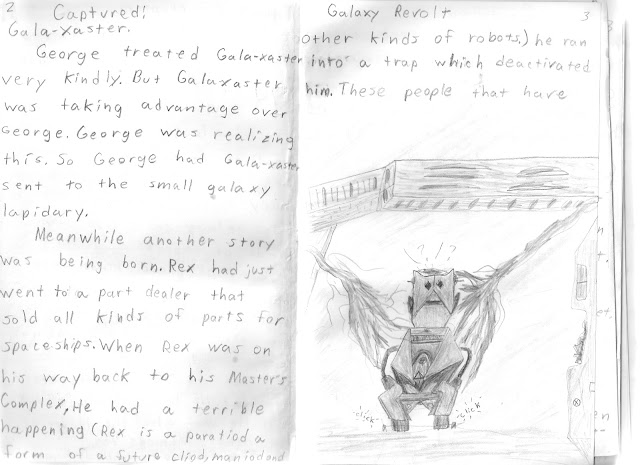 2
Captured!
Gala-xaster.
George treated Gala-xaster
very kindly. But Galaxaster
was taking advantage over
George. George was realizing
this. So George had Gala-xaster
sent to the small galaxy
lapidary.
Meanwhile another story
was being born. Rex had just
went to a part dealer that
sold all kinds of parts for
spaceships. When Rex was on
his way back to his Master's
Complex, He had a terrible
happening (Rex is a paratiod a
form of a future cliod, maniod and
Galaxy Revolt
3
other kinds of robots.) he ran
into a trap which deactivated
him. These people that have
?!?
click
click